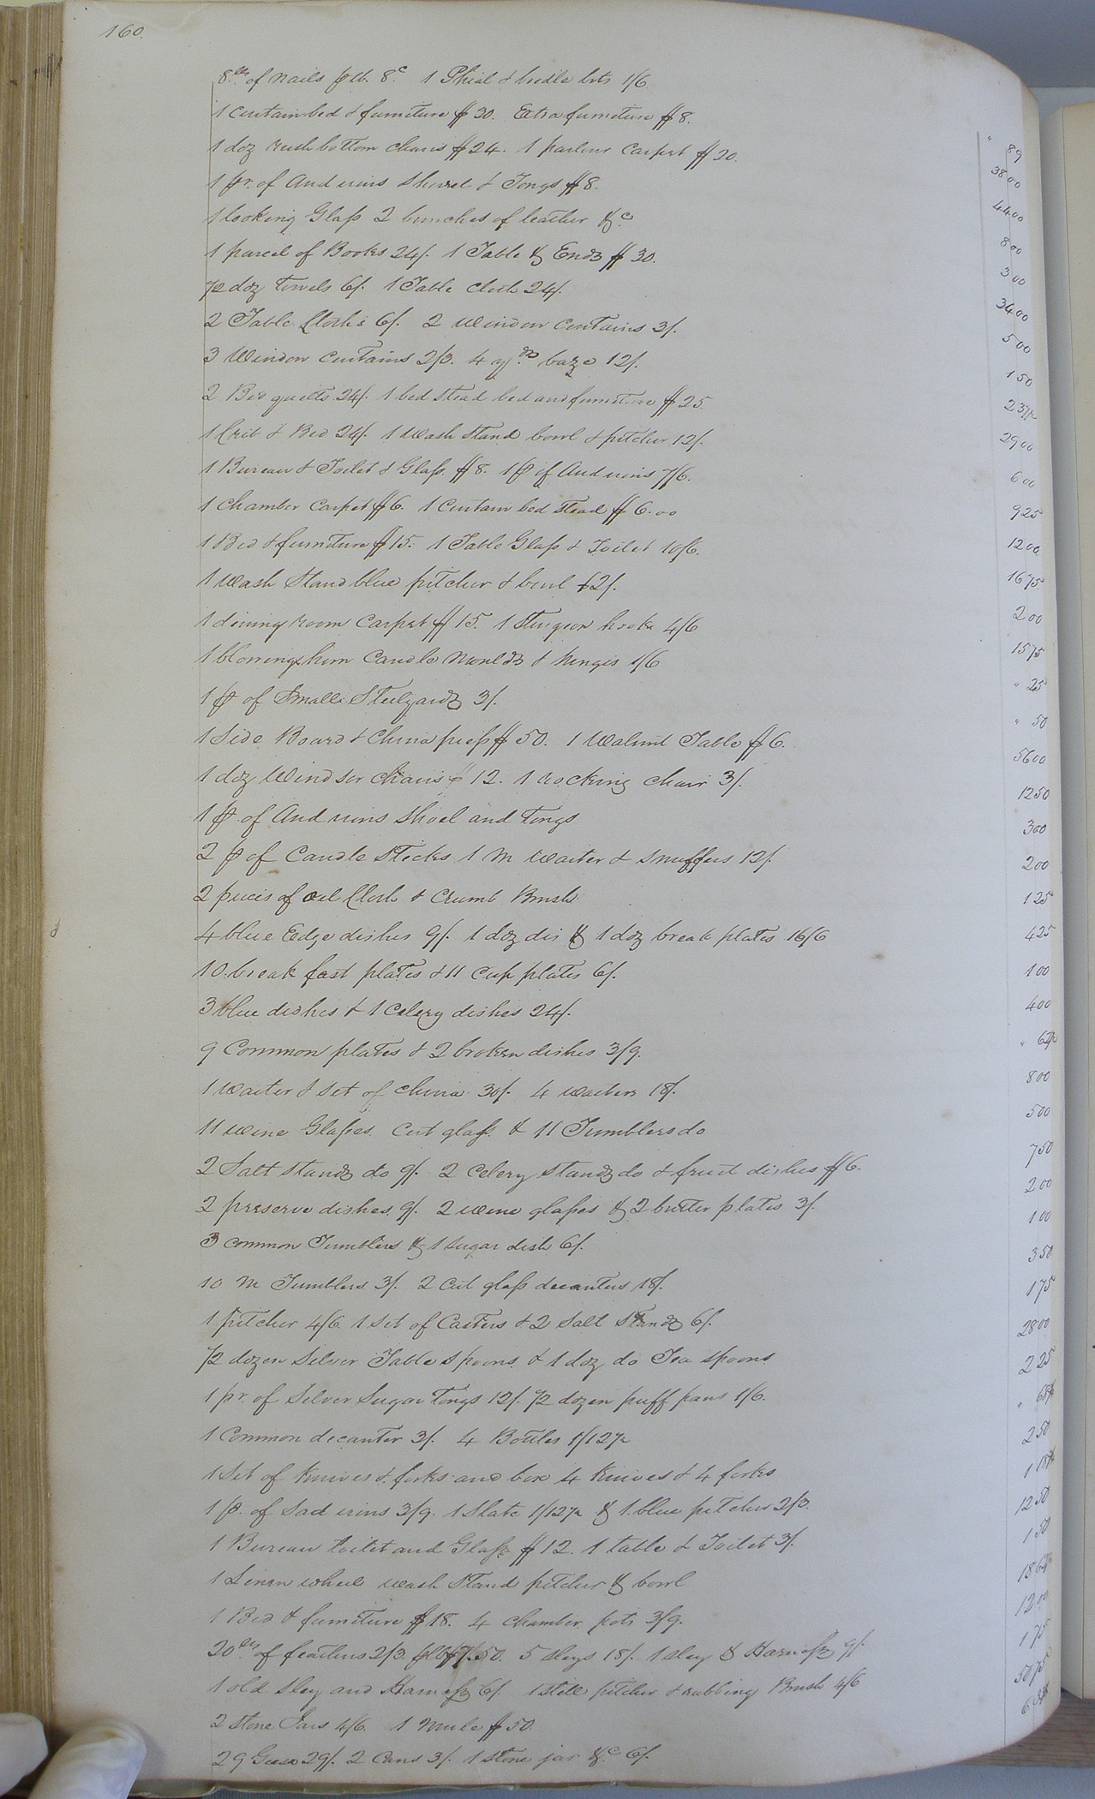 160.
8 lbs of nails p lb. 8c 1 Phial & bridle bits 1/6 " 89
1 curtain bed & furniture $30. Extra furniture $8. 38 00
1 doz rush bottom chairs $24. 1 parlour Carpet $20. 44 00
1 pr. of And irons shovel & Tongs $8. 8 00
1 looking Glass 2 bunches of leather &c 3 00
1 parcel of Books 24/. 1 Table & Ends $30. 34 00
1/2 doz towels 6/. 1 Table cloth 24/. 5 00
2 Table Cloths 6/. 2 window Curtains 3/. 1 50
3 Window Curtains 2/3. 4 yds baze 12/. 2 37 1/2
2 Bed quilts 24/. 1 bed stead bed and furniture $25. 29 00
1 Crib & Bed 24/. 1 Wash Stand bowl & pitcher 12/. 6 00
1 Bureau & Toilet & Glass $8. 1 p of And irons 7/6. 9 25
1 Chamber Carpet $6. 1 Curtain bed stead $6.00 12 00
1 Bed & furniture $15. 1 Table Glass & Toilet 10/6. 16 75
1 wash Stand blue pitcher & bowl 12/. 2 00
1 dining room Carpet $15. 1 Sturgeon hook 4/6 15 75
1 blowing horn Candle moulds & hinges 1/6 " 25
1 p of Small Steelyards 3/. " 50
1 Side Board & China press $50. 1 Walnut Table $6. 56 00
1 doz Windsor Chairs $12. 1 rocking chair 3/. 12 50
1 p of And irons shoel and tongs 3 00
2 p of Candle Sticks 1 m waiter & snuffers 12/. 2 00
2 pieces of oil Cloth & Crumb Brush 1 25
4 blue Edge dishes 9/. 1 doz dis & 1 doz break plates 16/6 4 25
10 break fast plates & 11 cup plates 6/. 1 00
3 blue dishes & 1 Celery dishes 24/. 4 00
9 Common plates & 2 broken dishes 3/9. " 62 1/2
1 waiter & set of china 30/. 4 waiters 18/. 8 00
11 wine Glasses. Cut glass & 11 Tumblers do 5 00
2 Salt stands do 9/. 2 Celery stands do & fruit dishes $6. 7 50
2 preserve dishes 9/. 2 wine glasses & 2 butter plates 3/. 2 00
3 common Tumblers & 1 sugar dish 6/. 1 00
10 m Tumblers 3/. 2 cut glass decanters 18/. 3 50
1 pitcher 4/6 1 set of Casters & 2 Salt Stands 6/. 1 75
1/2 dozen Silver Table spoons & 1 doz do Tea spoons 28 00
1 pr. of Silver Sugar tongs 12/. 1/2 dozen puff pans 1/6. 2 25
1 Common decanter 3/. 4 Bottles 1/1 1/2 " 68 3/4
1 Set of knives & forks and box 4 knives & 4 forks 2 50
1 p. of Sad irons 3/9. 1 Slate 1/1 1/2 & 1 blue pitcher 2/3. 1 18 3/4
1 Bureau toilet and Glass $12. 1 table & Toilet 3/. 12 50
1 Linen wheel wash Stand pitcher & bowl 1 50
1 Bed & furniture $18. 4 chamber pots 3/9. 18 62 1/2
20 lbs of feathers 2/3 5 sleys 18/. 1 sley & Harness 9/. 12 00
1 old Sley and Harness 6/. 1 still pitcher & rubbing Brush 4/6 1 75
2 stone Jars 4/6 1 Mule $50. 50 75
29 Geese 29/. 2 Cans 3/. 1 stone jar &c 6/.